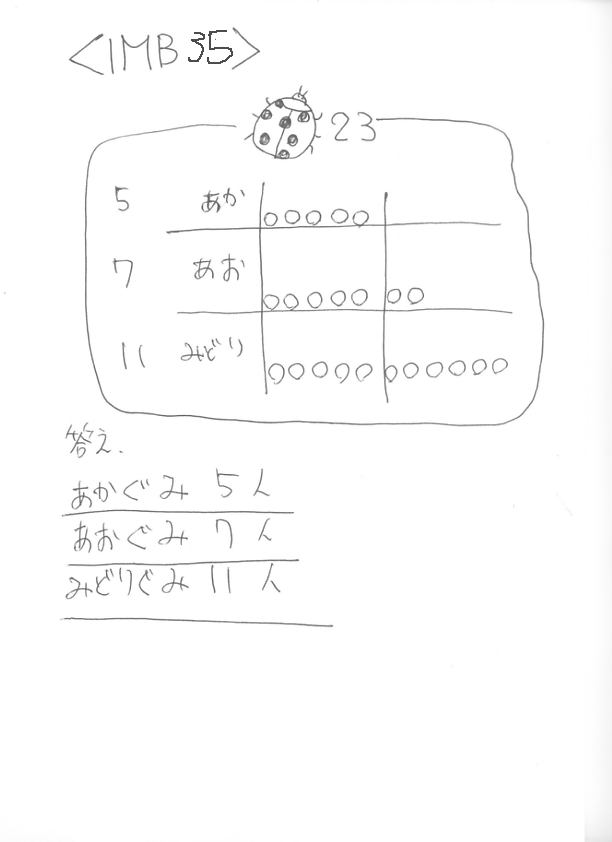 <IMB 35>
23
5 あか
7 あお
11 みどり
答え.
あかぐみ 5人
あおぐみ 7人
みどりぐみ 11人